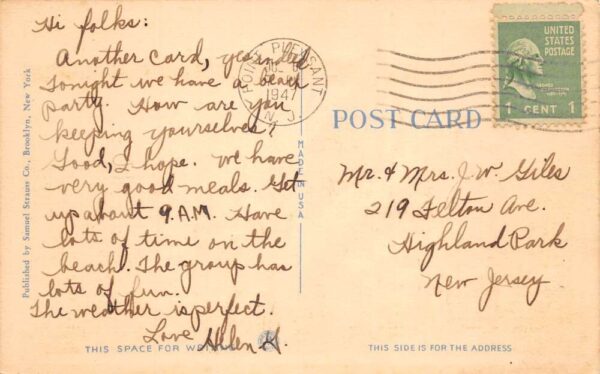 Hi folks:
Another card, yes indeed
Tonight we have a beach
party. How are you
keeping yourselves?
Good, I hope. We have
very good meals. Get
up about 9 A.M. Have
lots of time on the
beach. The group has
lots of fun.
The weather is perfect.
Love
Helen H.
Published by Samuel Strauss Co., Brooklyn, New York
THIS SPACE FOR WRITING
MADE IN USA
POINT PLEASANT
1947
N. J.
UNITED
STATES
POSTAGE
1 CENT 1
POST CARD
Mr. & Mrs. J. W. Giles
219 Felton Ave.
Highland Park
New Jersey.
THIS SIDE IS FOR THE ADDRESS